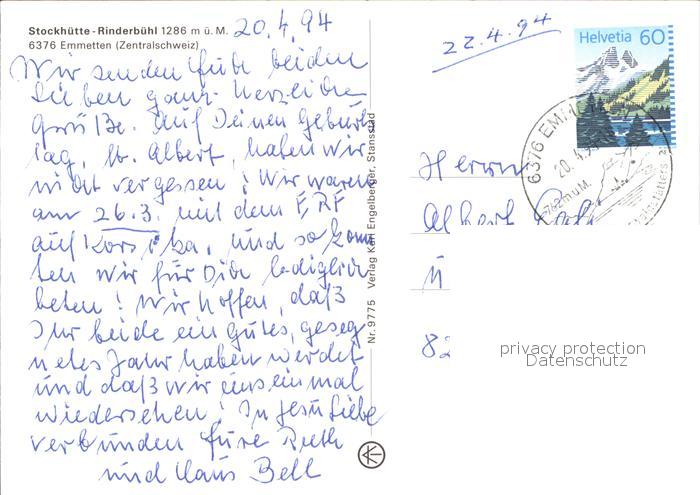 Stockhütte - Rinderbühl 1286 m ü. M. 20.4.94
6376 Emmetten (Zentralschweiz)
Wir senden Euch beiden
lieben ganz herzliche
Grüße. Auf Deinen Geburts
tag, lb. Albert, haben wir
nicht vergessen! Wir waren
am 26.3. mit dem ERF
auf Korsika, und so konn
ten wir für Dich lediglich
beten! Wir hoffen, daß
Ihr beide ein gutes, geseg
netes Jahr haben werdet
und daß wir uns einmal
wiedersehen! In Jesu Liebe
verbunden Eure Ruth
und Claus Bell
Nr. 9775 Verlag Karl Engelberger, Stansstad
22.4.94
Helvetia 60
6376 EMM
20.4.9
762 m ü M.
Herrn
Albert
82
privacy protection
Datenschutz